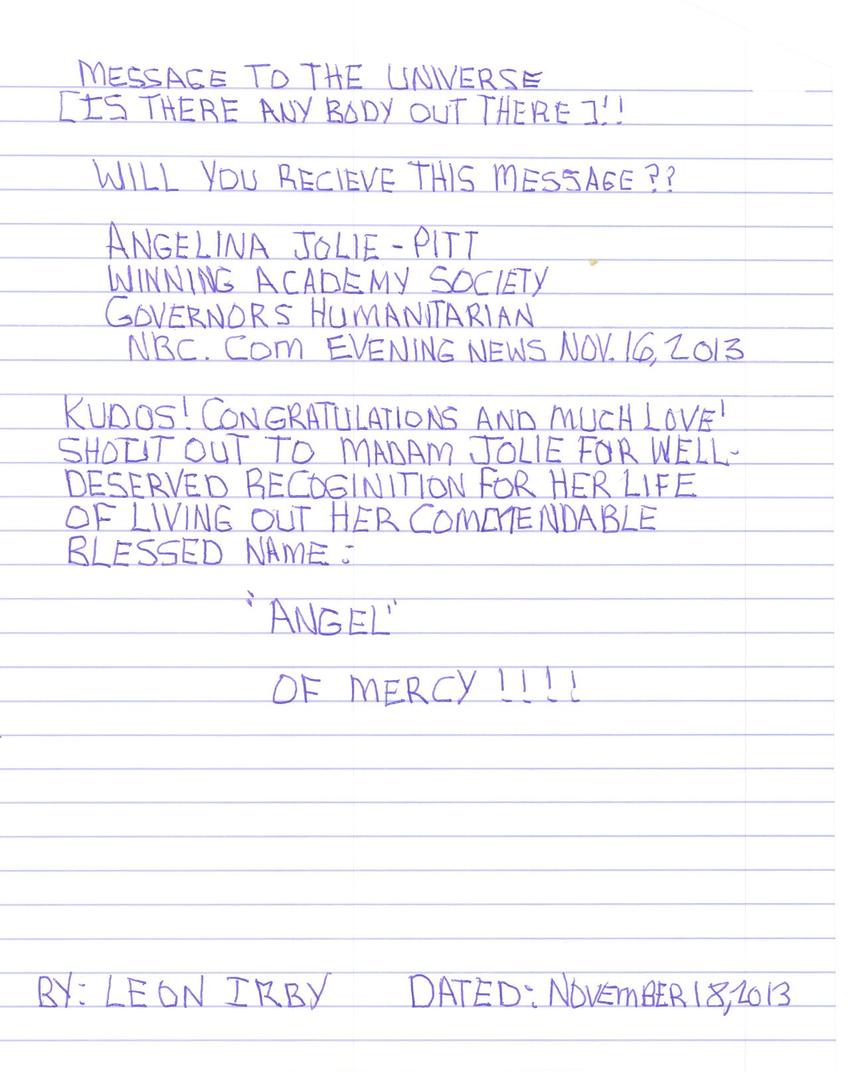 MESSAGE TO THE UNIVERSE
[IS THERE ANY BODY OUT THERE]!!
WILL YOU RECIEVE THIS MESSAGE??
ANGELINA JOLIE-PITT
WINNING ACADEMY SOCIETY
GOVERNORS HUMANITARIAN
NBC.COM EVENING NEWS NOV. 16, 2013
KUDOS! CONGRATULATIONS AND MUCH LOVE!
SHOUT OUT TO MADAM JOLIE FOR WELL-
DESERVED RECOGINITION FOR HER LIFE
OF LIVING OUT HER COMMENDABLE
BLESSED NAME:
"ANGEL"
OF MERCY!!!!
BY: LEON IRBY DATED: NOVEMBER 18, 2013